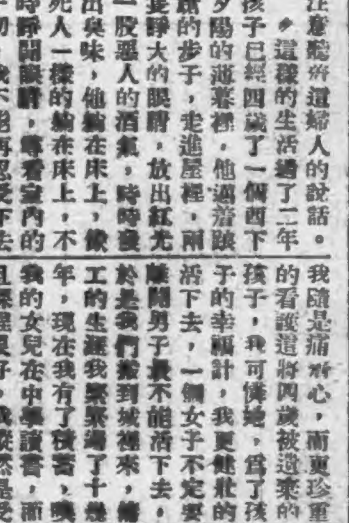 注意聽着這婦人的說話。
這樣的生活過了二年
孩子已經四歲了一個西下
夕陽的遲暮裡,他邁着踉
的步子,走進屋裡,兩
睜大的眼睛,放出紅光
一股惡人的酒氣,時時發
出臭味,他躺在床上,像
死人一樣的躺在床上,不
時睜開眼睛,看室內的
切,我不能再忍受下去
我隨是痛心,而更珍重
的看護這將四歲被遺棄的
孩子,我可憐她,爲了孩
子的幸福計,我更健壯的
活下去,一個女子不定要
離開男子就不能活下去。
於是我們搬到城裡來,傭
工的生涯我整整過了十幾
年,現在我有了積蓄,
我的女兒在中學讀書,而